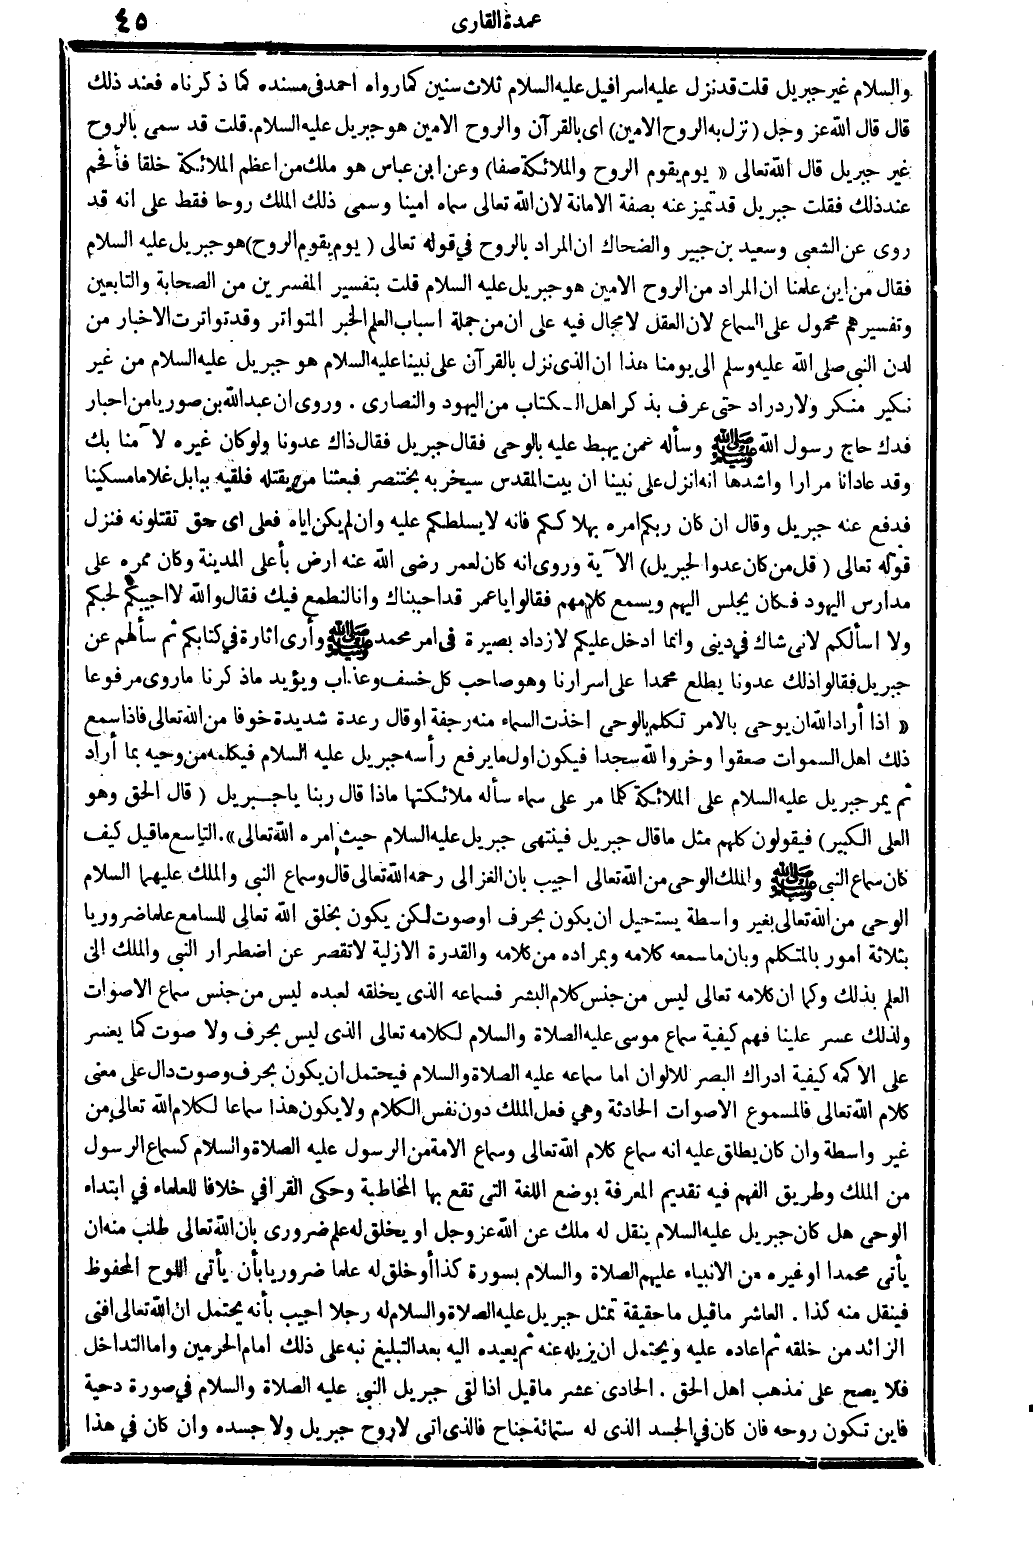 عمدة القارى ٤٥
والسلام غير جبريل قلت قد نزل عليه اسرافيل عليه السلام ثلاث سنين كما رواه احمد فى مسنده كما ذكرناه فعند ذلك
قال قال الله عز وجل (نزل به الروح الامين) اى بالقرآن والروح الامين هو جبريل عليه السلام. قلت قد سمى بالروح
غير جبريل قال الله تعالى « يوم يقوم الروح والملائكة صفا) وعن ابن عباس هو ملك من اعظم الملائكة خلقا فأفحم
عند ذلك فقلت جبريل قد تميز عنه بصفة الامانة لان الله تعالى سماه امينا وسمى ذلك الملك روحا فقط على انه قد
روى عن الشعبى وسعيد بن جبير والضحاك ان المراد بالروح في قوله تعالى ( يوم يقوم الروح) هو جبريل عليه السلام
فقال من اين علمنا ان المراد من الروح الامين هو جبريل عليه السلام قلت بتفسير المفسرين من الصحابة والتابعين
وتفسيرهم محمول على السماع لان العقل لا مجال فيه على ان من جملة اسباب العلم الخبر المتواتر وقد تواترت الاخبار من
لدن النبى صلى الله عليه وسلم الى يومنا هذا ان الذى نزل بالقرآن على نبينا عليه السلام هو جبريل عليه السلام من غير
نكير منكر ولا رد راد حتى عرف بذكر اهل الكتاب من اليهود والنصارى . وروى ان عبد الله بن صوريا من احبار
فدك حاج رسول الله ﷺ وسأله عمن يهبط عليه بالوحى فقال جبريل فقال ذاك عدونا ولو كان غيره لآمنا بك
وقد عادانا مرارا واشدها انه انزل على نبينا ان بيت المقدس سيخربه بختنصر فبعثنا من يقتله فلقيه ببابل غلاما مسكينا
فدفع عنه جبريل وقال ان كان ربكم امره بهلاككم فانه لا يسلطكم عليه وان لم يكن اياه فعلى اى حق تقتلونه فنزل
قوله تعالى ( قل من كان عدوا لجبريل) الآية وروى انه كان لعمر رضى الله عنه ارض بأعلى المدينة وكان ممره على
مدارس اليهود فكان يجلس اليهم ويسمع كلامهم فقالوا يا عمر قد احببناك وانا لنطمع فيك فقال والله لا اجيبكم لحبكم
ولا اسألكم لانى شاك في دينى وانما ادخل عليكم لازداد بصيرة فى امر محمد ﷺ وأرى اثارة في كتابكم ثم سألهم عن
جبريل فقالوا ذلك عدونا يطلع محمدا على اسرارنا وهو صاحب كل خسف وعذاب ويؤيد ما ذكرنا ما روى مرفوعا
« اذا أراد الله ان يوحى بالامر تكلم بالوحى اخذت السماء منه رجفة او قال رعدة شديدة خوفا من الله تعالى فاذا سمع
ذلك اهل السموات صعقوا وخروا لله سجدا فيكون اول ما يرفع رأسه جبريل عليه السلام فيكلمه من وحيه بما أراد
ثم يمر جبريل عليه السلام على الملائكة كلما مر على سماء سأله ملائكتها ماذا قال ربنا يا جبريل ( قال الحق وهو
العلى الكبير) فيقولون كلهم مثل ما قال جبريل فينتهى جبريل عليه السلام حيث امره الله تعالى». التاسع ما قيل كيف
كان سماع النبى ﷺ والملك الوحى من الله تعالى اجيب بان الغزالى رحمه الله تعالى قال وسماع النبى والملك عليهما السلام
الوحى من الله تعالى بغير واسطة يستحيل ان يكون بحرف او صوت لكن يكون بخلق الله تعالى للسامع علما ضروريا
بثلاثة امور بالمتكلم وبان ما سمعه كلامه وبمراده من كلامه والقدرة الازلية لا تقصر عن اضطرار النبى والملك الى
العلم بذلك وكما ان كلامه تعالى ليس من جنس كلام البشر فسماعه الذى يخلقه لعبده ليس من جنس سماع الاصوات
ولذلك عسر علينا فهم كيفية سماع موسى عليه الصلاة والسلام لكلامه تعالى الذى ليس بحرف ولا صوت كما يعسر
على الاكمه كيفية ادراك البصر للالوان اما سماعه عليه الصلاة والسلام فيحتمل ان يكون بحرف وصوت دال على معنى
كلام الله تعالى فالمسموع الاصوات الحادثة وهي فعل الملك دون نفس الكلام ولا يكون هذا سماعا لكلام الله تعالى من
غير واسطة وان كان يطلق عليه انه سماع كلام الله تعالى وسماع الامة من الرسول عليه الصلاة والسلام كسماع الرسول
من الملك وطريق الفهم فيه تقديم المعرفة بوضع اللغة التى تقع بها المخاطبة وحكى القرافي خلافا للعلماء في ابتداء
الوحى هل كان جبريل عليه السلام ينقل له ملك عن الله عز وجل او يخلق له علم ضرورى بان الله تعالى طلب منه ان
يأتى محمدا او غيره من الانبياء عليهم الصلاة والسلام بسورة كذا أو خلق له علما ضروريا بأن يأتى اللوح المحفوظ
فينقل منه كذا . العاشر ما قيل ما حقيقة تمثل جبريل عليه الصلاة والسلام له رجلا اجيب بأنه يحتمل ان الله تعالى افنى
الزائد من خلقه ثم اعاده عليه ويحتمل ان يزيله عنه ثم يعيده اليه بعد التبليغ نبه على ذلك امام الحرمين واما التداخل
فلا يصح على مذهب اهل الحق . الحادى عشر ما قيل اذا لقى جبريل النبى عليه الصلاة والسلام في صورة دحية
فاين تكون روحه فان كان في الجسد الذى له ستمائة جناح فالذى اتى لا روح جبريل ولا جسده وان كان في هذا